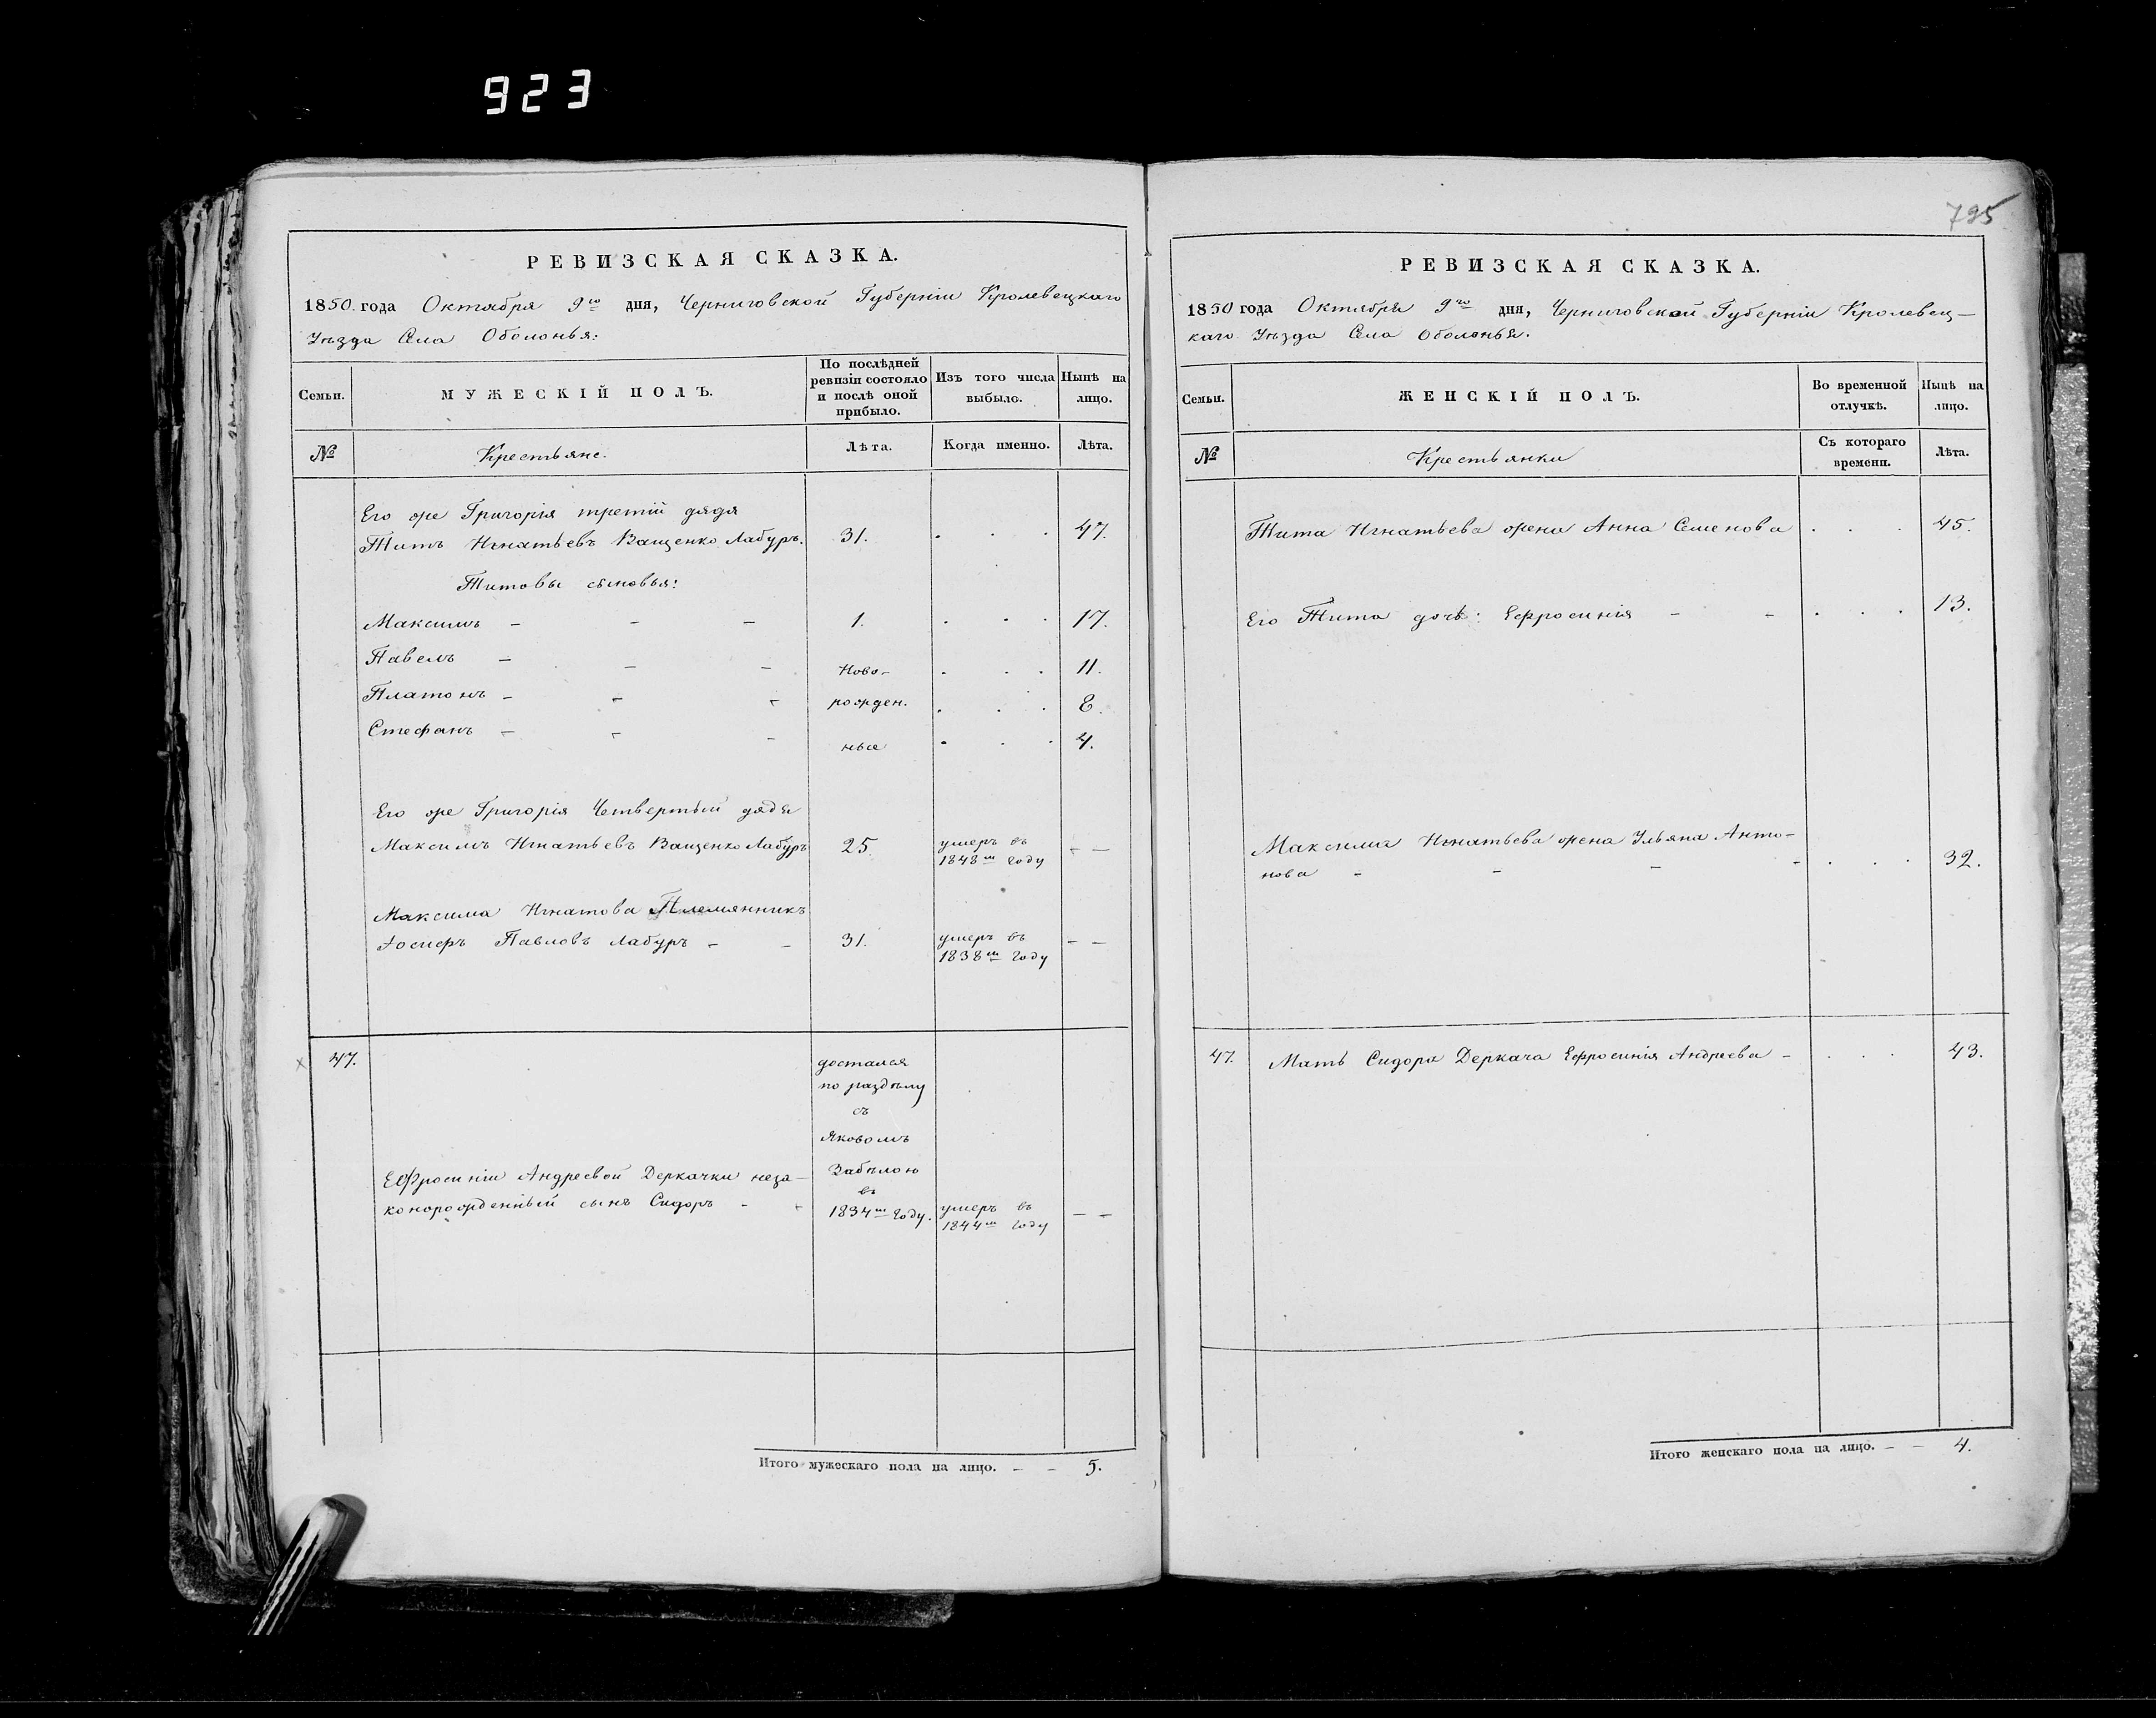 923
РЕВИЗСКАЯ СКАЗКА.
1850. года Октября 9го дня, Черниговской Губерніи Кролевецкаго
Уѣзда Села Оболонья:
Семьи.
МУЖЕСКІЙ ПОЛЪ.
По послѣдней
ревизіи состояло
и послѣ оной
прибыло.
Изъ того числа
выбыло.
Нынѣ на
лицо.
№
Крестьяне.
Лѣта.
Когда именно.
Лѣта.
Его же Григорія третій дядя
Титъ Игнатьевъ Ващенко Лабуръ. 31. . . . 47.
Титовы сыновья:
Максимъ - - - 1. . . . 17.
Павелъ - - - Ново- . . . 11.
Платонъ - - - рожден. . . . 8.
Стефанъ - - - ные . . . 4.
Его же Григорія Четвертый дядя
Максимъ Игнатьевъ Ващенко Лабуръ 25. умеръ въ
1848м году - -
Максима Игнатова Племянникъ
Іосифъ Павловъ Лабуръ - - 31. умеръ въ
1838м году - -
47.
достался
по раздѣлу
съ
Яковомъ
Забѣлою
въ
1834м году.
Ефросиніи Андреевой Деркачки неза-
конорожденный сынъ Сидоръ - -
умеръ въ
1844м году - -
Итого мужескаго пола на лицо. - - 5.
795
РЕВИЗСКАЯ СКАЗКА.
1850 года Октября 9го дня, Черниговской Губерніи Кролевец-
каго Уѣзда Села Оболонья.
Семьи.
ЖЕНСКІЙ ПОЛЪ.
Во временной
отлучкѣ.
Нынѣ на
лицо.
№
Крестьянки
Съ котораго
времени.
Лѣта.
Тита Игнатьева жена Анна Семенова . . . 45.
Его Тита дочь: Ефросинія - - . . . 13.
Максима Игнатьева жена Ульяна Анто-
нова - - - - . . . 32.
47. Мать Сидора Деркача Ефросинія Андреева - . . . 43.
Итого женскаго пола на лицо. - - 4.